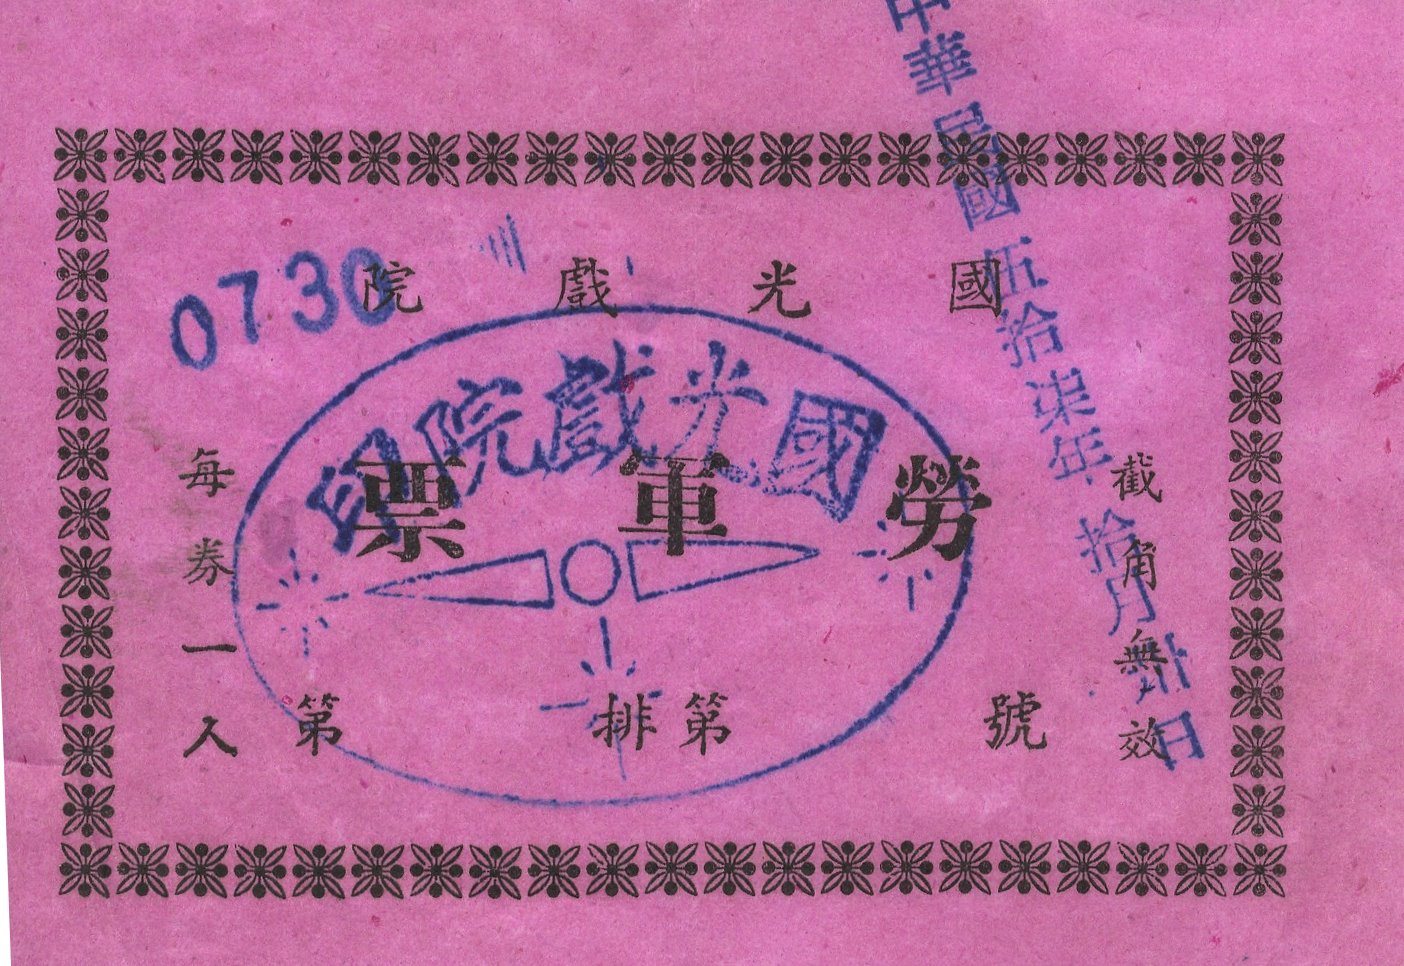 國光戲院
勞軍票
第 排 第 號
截角無效
每券一人
0730
國光戲院印
中華民國伍拾柒年拾月卅日